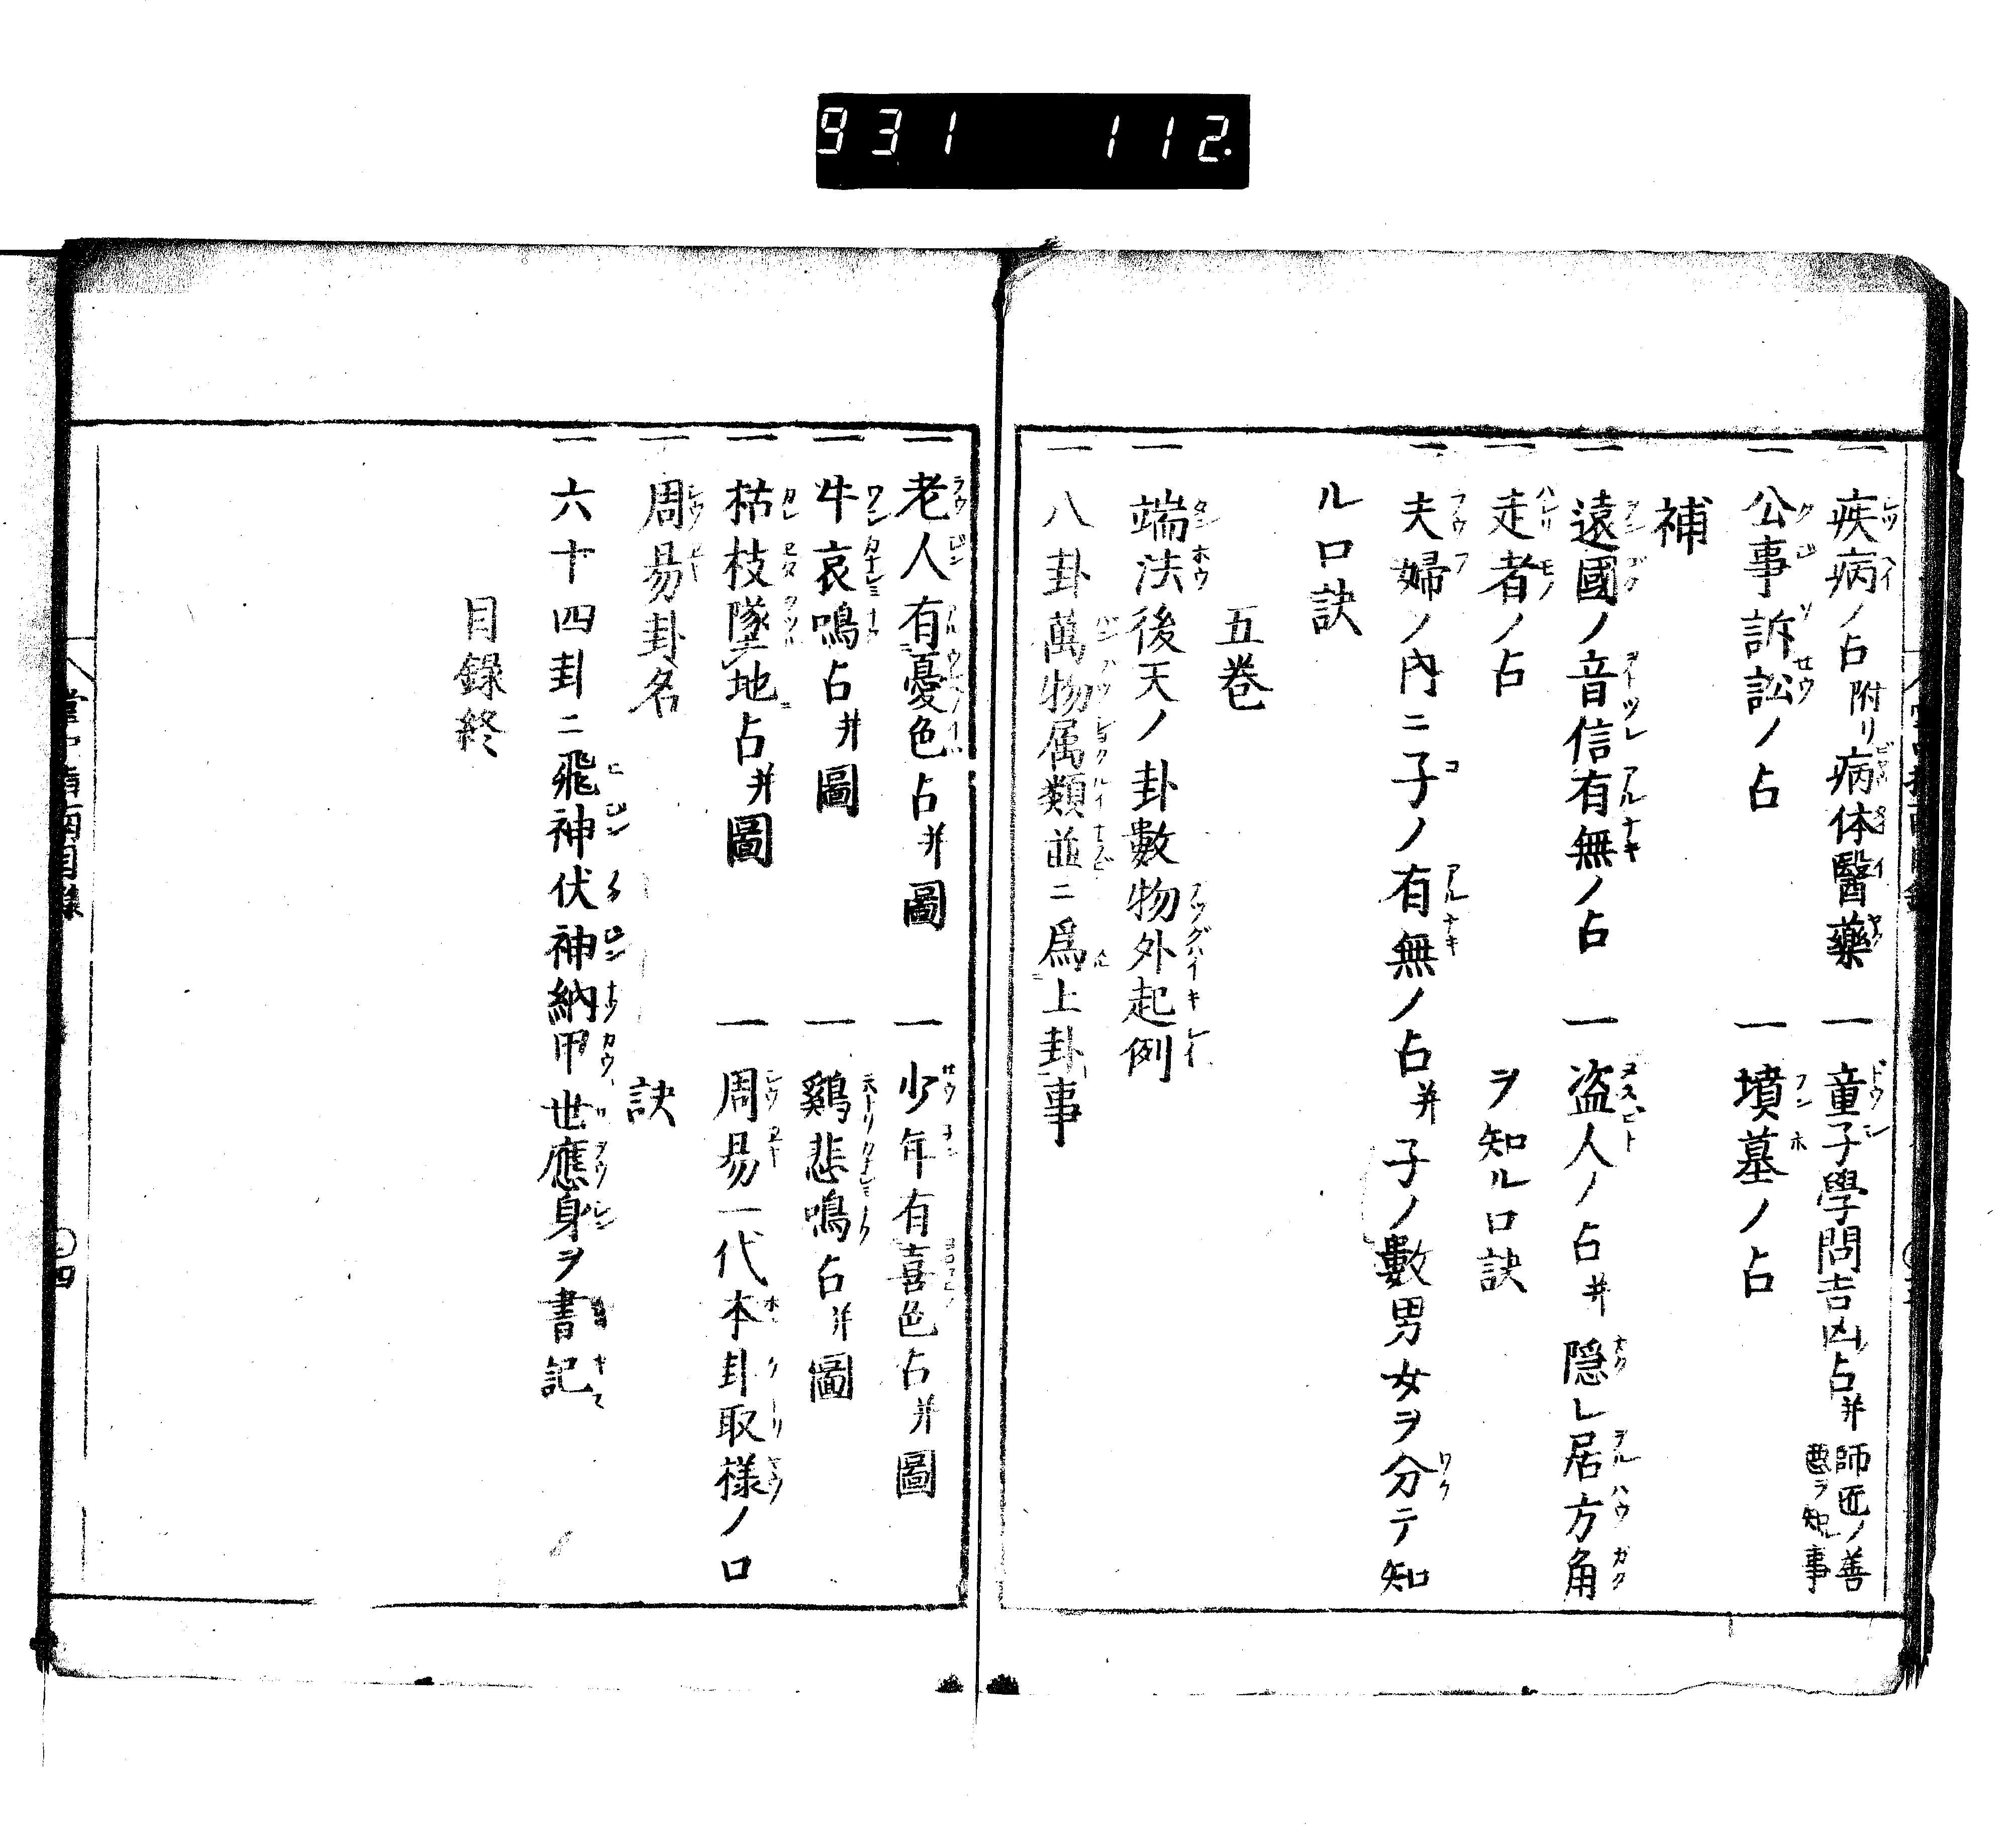 931 112
一疾病ノ占附リ病体醫藥 一童子學問吉凶占并師匠ノ善悪ヲ知ル事
一公事訴訟ノ占 一墳墓ノ占
補
一遠國ノ音信有無ノ占 一盗人ノ占并隠レ居方角
一走者ノ占 ヲ知ル口訣
一夫婦ノ内ニ子ノ有無ノ占并子ノ數男女ヲ分テ知
ル口訣
五巻
一端法後天ノ卦數物外起例
一八卦萬物属類並ニ為上卦事
一老人有憂色占并圖 一少年有喜色占并圖
一牛哀鳴占并圖 一鷄悲鳴占并圖
一枯枝墜地占并圖 一周易一代本卦取様ノ口
一周易卦名 訣
一六十四卦ニ飛神伏神納甲世應身ヲ書記
目録終